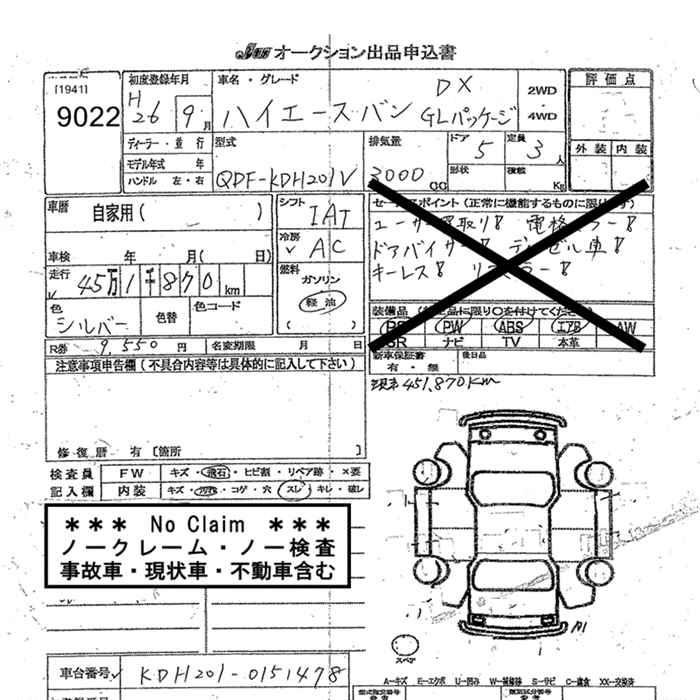 オークション出品申込書
[1941]
9022
初度登録年月
H
26 9月
車名・グレード
ハイエースバン
DX
GLパッケージ
2WD
・
4WD
評価点
外装 内装
ディーラー・並行
モデル年式 年
ハンドル 左・右
型式
QDF-KDH201V
排気量
3000 CC
ドア
5
定員
3人
形状
積載
Kg
車歴
自家用( )
車検 年 月( 日)
走行
45万1千870km
色
シルバー
色替
色コード
シフト
IAT
冷房
AC
燃料
ガソリン
軽油
( )
セールスポイント(正常に機能するものに限ります)
ユーザー買取り! 電格ミラー!
ドアバイザー! ディーゼル車!
キーレス!
PS PW ABS エアB AW
SR ナビ TV 本革
新車保証書
有・無
後日品
現車451,870km
R券 9,550円
名変期限 月 日
注意事項申告欄(不具合内容等は具体的に記入して下さい)
修復歴 有[箇所 ]
検査員
記入欄
FW キズ・飛石・ヒビ割・リペア跡・×要
内装 キズ・汚れ・コゲ・穴・スレ・キレ・破レ
*** No Claim ***
ノークレーム・ノー検査
事故車・現状車・不動車含む
車台番号
KDH201-0151478
スペア
A―キズ E―エクボ U―凹み W―補修跡 S―サビ C―腐食 XX―交換済